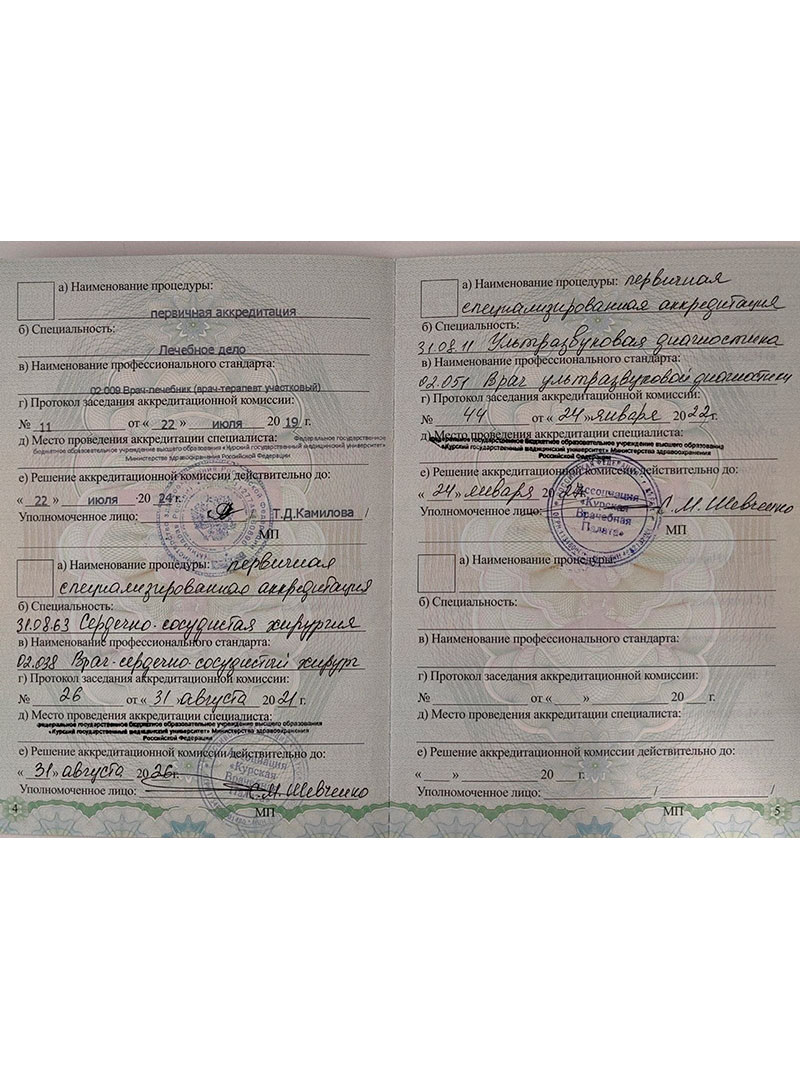 а) Наименование процедуры:
первичная аккредитация
б) Специальность:
Лечебное дело
в) Наименование профессионального стандарта:
02.009 Врач-лечебник (врач-терапевт участковый)
г) Протокол заседания аккредитационной комиссии:
№ 11 от « 22 » июля 20 19 г.
д) Место проведения аккредитации специалиста: Федеральное государственное
бюджетное образовательное учреждение высшего образования «Курский государственный медицинский университет»
Министерства здравоохранения Российской Федерации
е) Решение аккредитационной комиссии действительно до:
« 22 » июля 20 24 г.
Уполномоченное лицо: Т.Д.Камилова /
МП
а) Наименование процедуры: первичная
специализированная аккредитация
б) Специальность:
31.08.63 Сердечно-сосудистая хирургия
в) Наименование профессионального стандарта:
02.038 Врач-сердечно-сосудистый хирург
г) Протокол заседания аккредитационной комиссии:
№ 26 от « 31 » августа 20 21 г.
д) Место проведения аккредитации специалиста:
федеральное государственное бюджетное образовательное учреждение высшего образования
«Курский государственный медицинский университет» Министерства здравоохранения
Российской Федерации
е) Решение аккредитационной комиссии действительно до:
« 31 » августа 20 26 г.
Уполномоченное лицо: С.М. Шевченко
Ассоциация
«Курская
Врачебная
Палата»
МП
4
а) Наименование процедуры: первичная
специализированная аккредитация
б) Специальность:
31.08.11 Ультразвуковая диагностика
в) Наименование профессионального стандарта:
02.051 Врач ультразвуковой диагностики
г) Протокол заседания аккредитационной комиссии:
№ 44 от « 24 » января 20 22 г.
д) Место проведения аккредитации специалиста:
федеральное государственное бюджетное образовательное учреждение высшего образования
«Курский государственный медицинский университет» Министерства здравоохранения
Российской Федерации
е) Решение аккредитационной комиссии действительно до:
« 24 » января 20 27
Уполномоченное лицо: С.М. Шевченко
Ассоциация
«Курская
Врачебная
Палата»
МП
а) Наименование процедуры:
б) Специальность:
в) Наименование профессионального стандарта:
г) Протокол заседания аккредитационной комиссии:
№ от « » 20 г.
д) Место проведения аккредитации специалиста:
е) Решение аккредитационной комиссии действительно до:
« » 20 г.
Уполномоченное лицо: / /
МП
5